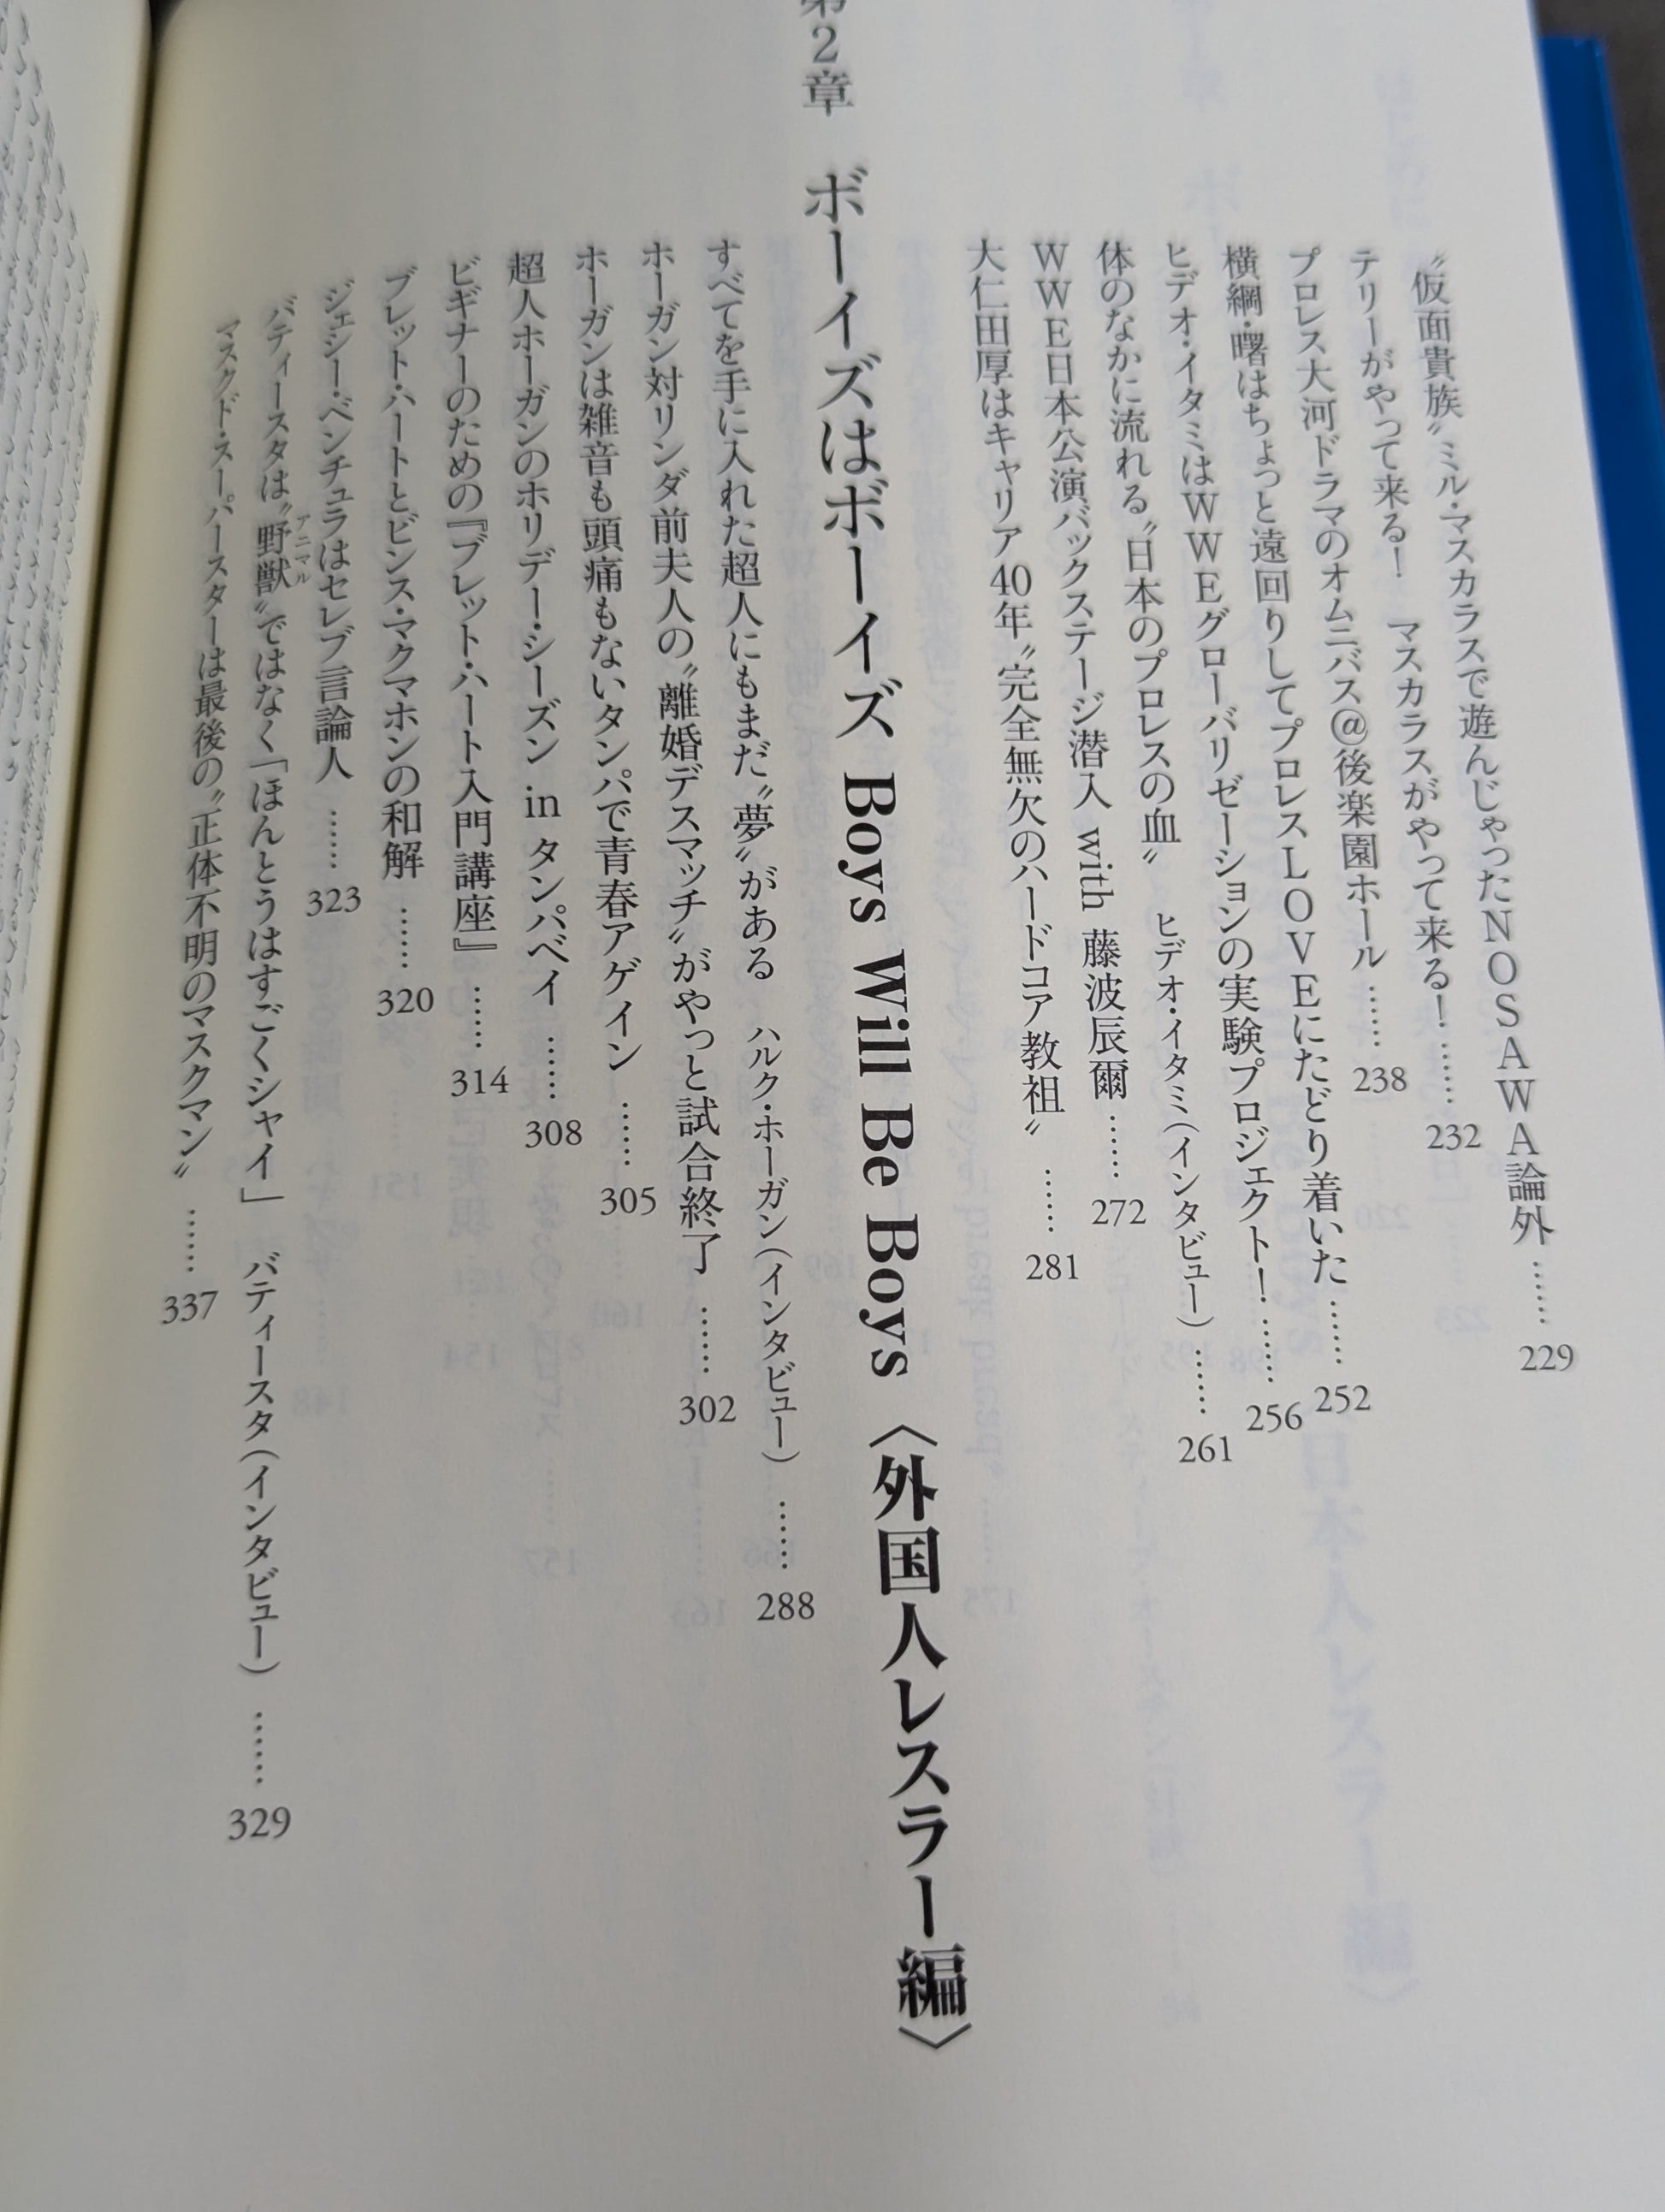 〝仮面貴族〟ミル・マスカラスで遊んじゃったNOSAWA論外 …… 229
テリーがやって来る！ マスカラスがやって来る！ …… 232
プロレス大河ドラマのオムニバス＠後楽園ホール …… 238
横綱・曙はちょっと遠回りしてプロレスLOVEにたどり着いた …… 252
ヒデオ・イタミはWWEグローバリゼーションの実験プロジェクト！ …… 256
体のなかに流れる〝日本のプロレスの血〟 ヒデオ・イタミ（インタビュー） …… 261
WWE日本公演バックステージ潜入 with 藤波辰爾 …… 272
大仁田厚はキャリア40年〝完全無欠のハードコア教祖〟 …… 281
第2章 ボーイズはボーイズ Boys Will Be Boys〈外国人レスラー編〉
すべてを手に入れた超人にもまだ〝夢〟がある ハルク・ホーガン（インタビュー） …… 288
ホーガン対リンダ前夫人の〝離婚デスマッチ〟がやっと試合終了 …… 302
ホーガンは雑音も頭痛もないタンパで青春アゲイン …… 305
超人ホーガンのホリデー・シーズン in タンパベイ …… 308
ビギナーのための『ブレット・ハート入門講座』 …… 314
ブレット・ハートとビンス・マクマホンの和解 …… 320
ジェシー・ベンチュラはセレブ言論人 …… 323
アニマル
バティースタは〝野獣〟ではなく「ほんとうはすごくシャイ」 バティースタ（インタビュー） …… 329
マスクド・スーパースターは最後の〝正体不明のマスクマン〟 …… 337